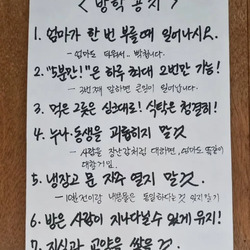 < 방학 공지 >
1. 엄마가 한 번 부를 때 일어나시오.
- 엄마도 따라서..
2. "5분만!"은 하루 최대 2번만 가능!
- 3번째 말하면 큰일이 일어납니다.
3. 먹은 그릇은 싱크대로! 식탁은 청결히!
4. 누나·동생을 괴롭히지 말 것
- 사람을 장난감처럼 대하면, 엄마도 똑같이
대할거임.
5. 냉장고 문 자주 열지 말 것.
- 10분전이랑 내용물은 동일하다는 것 잊지말기
6. 방은 사람이 지나다닐 수 있게 유지!
7. 지식과 교양을 쌓을 것.